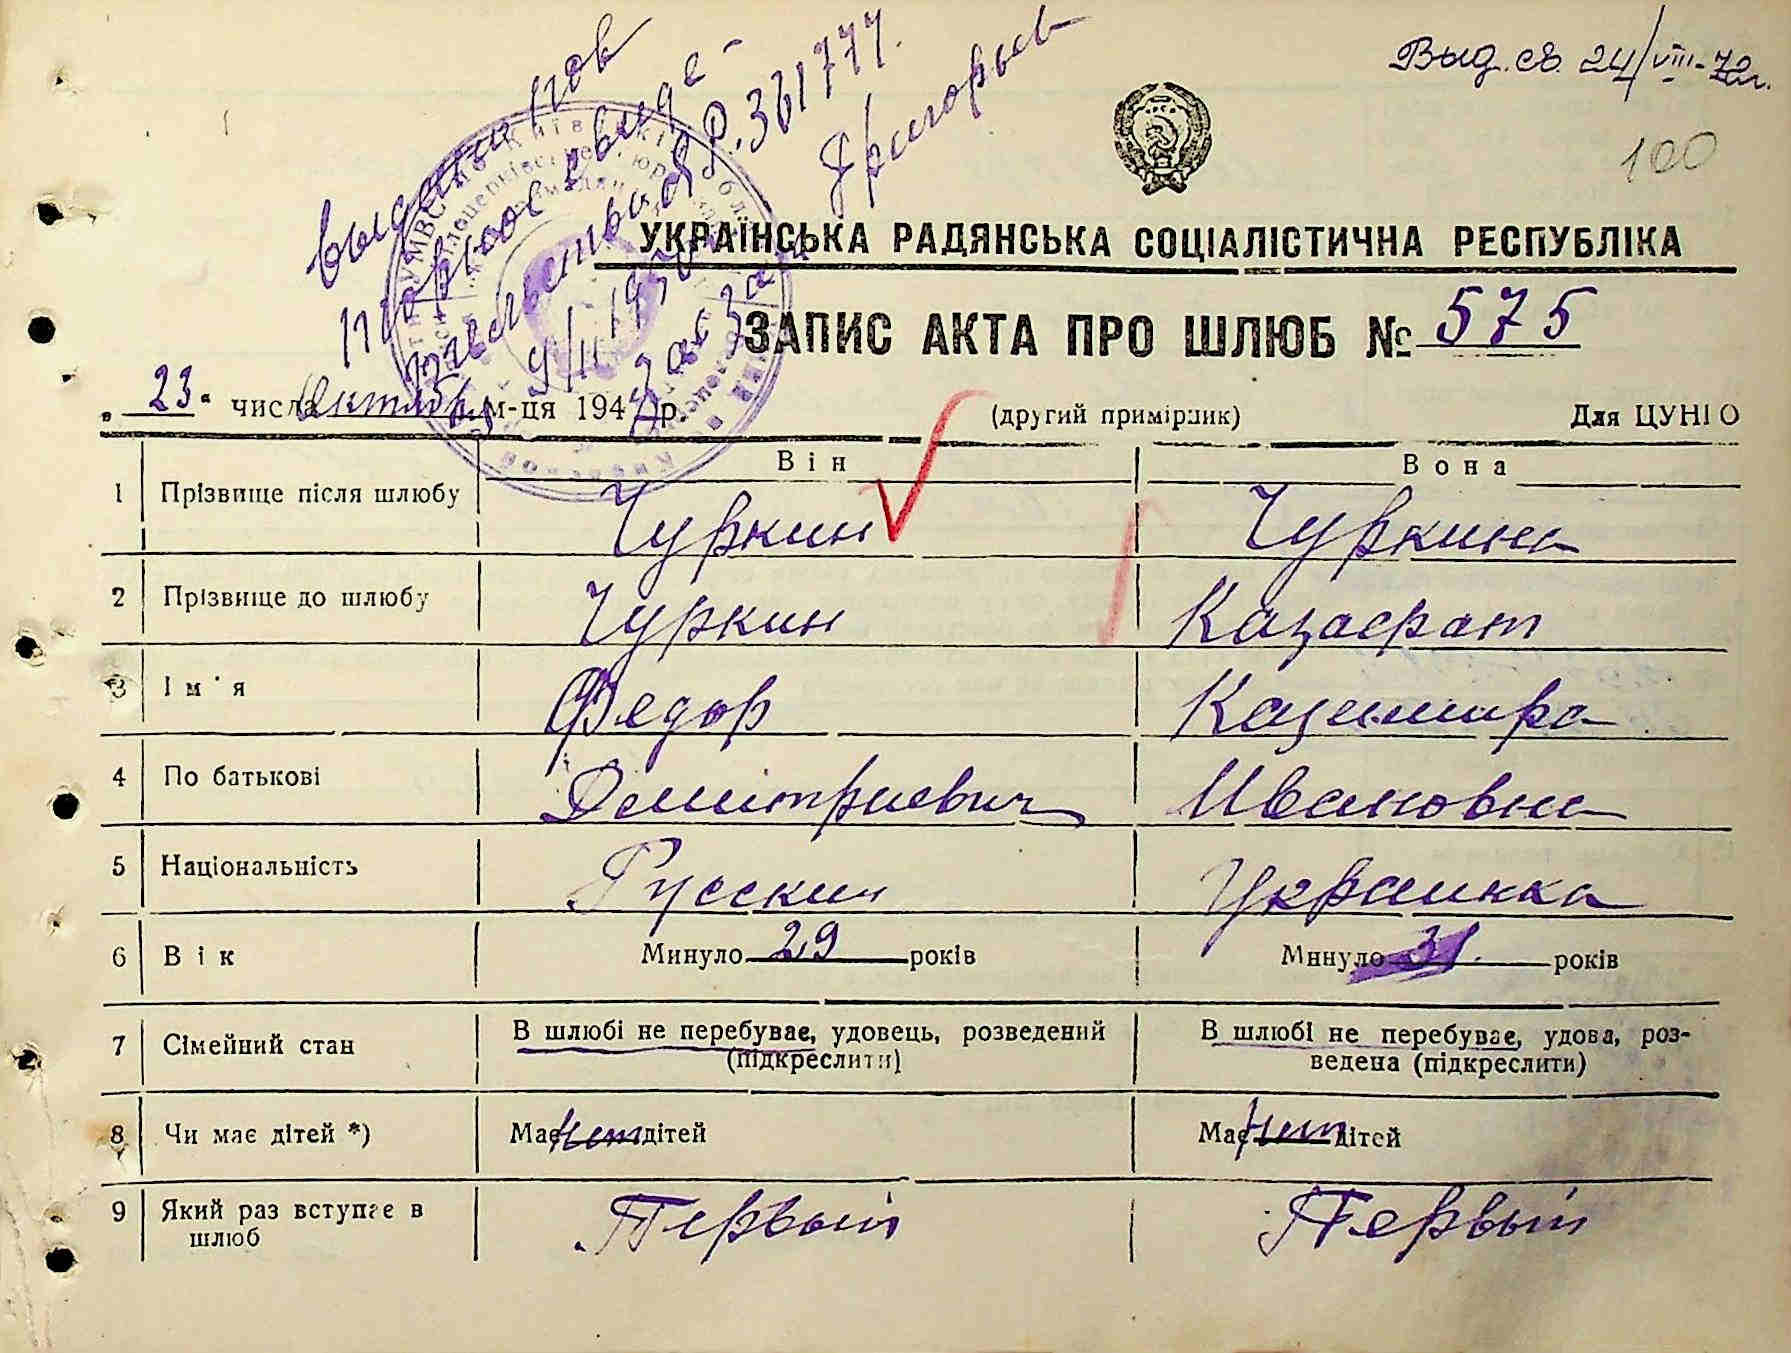 Выд. св. 24/VIII-70г.
100
выдано пов
торное свиде-
тельство
Р. 361777.
УКРАЇНСЬКА РАДЯНСЬКА СОЦІАЛІСТИЧНА РЕСПУБЛІКА
ЗАПИС АКТА ПРО ШЛЮБ № 575
„23“ числа Октября м-ця 194 р.
(другий примірник) Для ЦУНГО
Він Вона
1 Прізвище після шлюбу Чуркин Чуркина
2 Прізвище до шлюбу Чуркин Казасфат
3 Ім'я Федор Казимира
4 По батькові Дмитриевич Ивановна
5 Національність Русский Украинка
6 Вік Минуло 29 років Минуло 31. років
7 Сімейний стан В шлюбі не перебуває, удовець, розведений В шлюбі не перебуває, удова, роз-
(підкреслити) ведена (підкреслити)
8 Чи має дітей *) Має нет дітей Має нет дітей
9 Який раз вступає в Первый Первый
шлюб